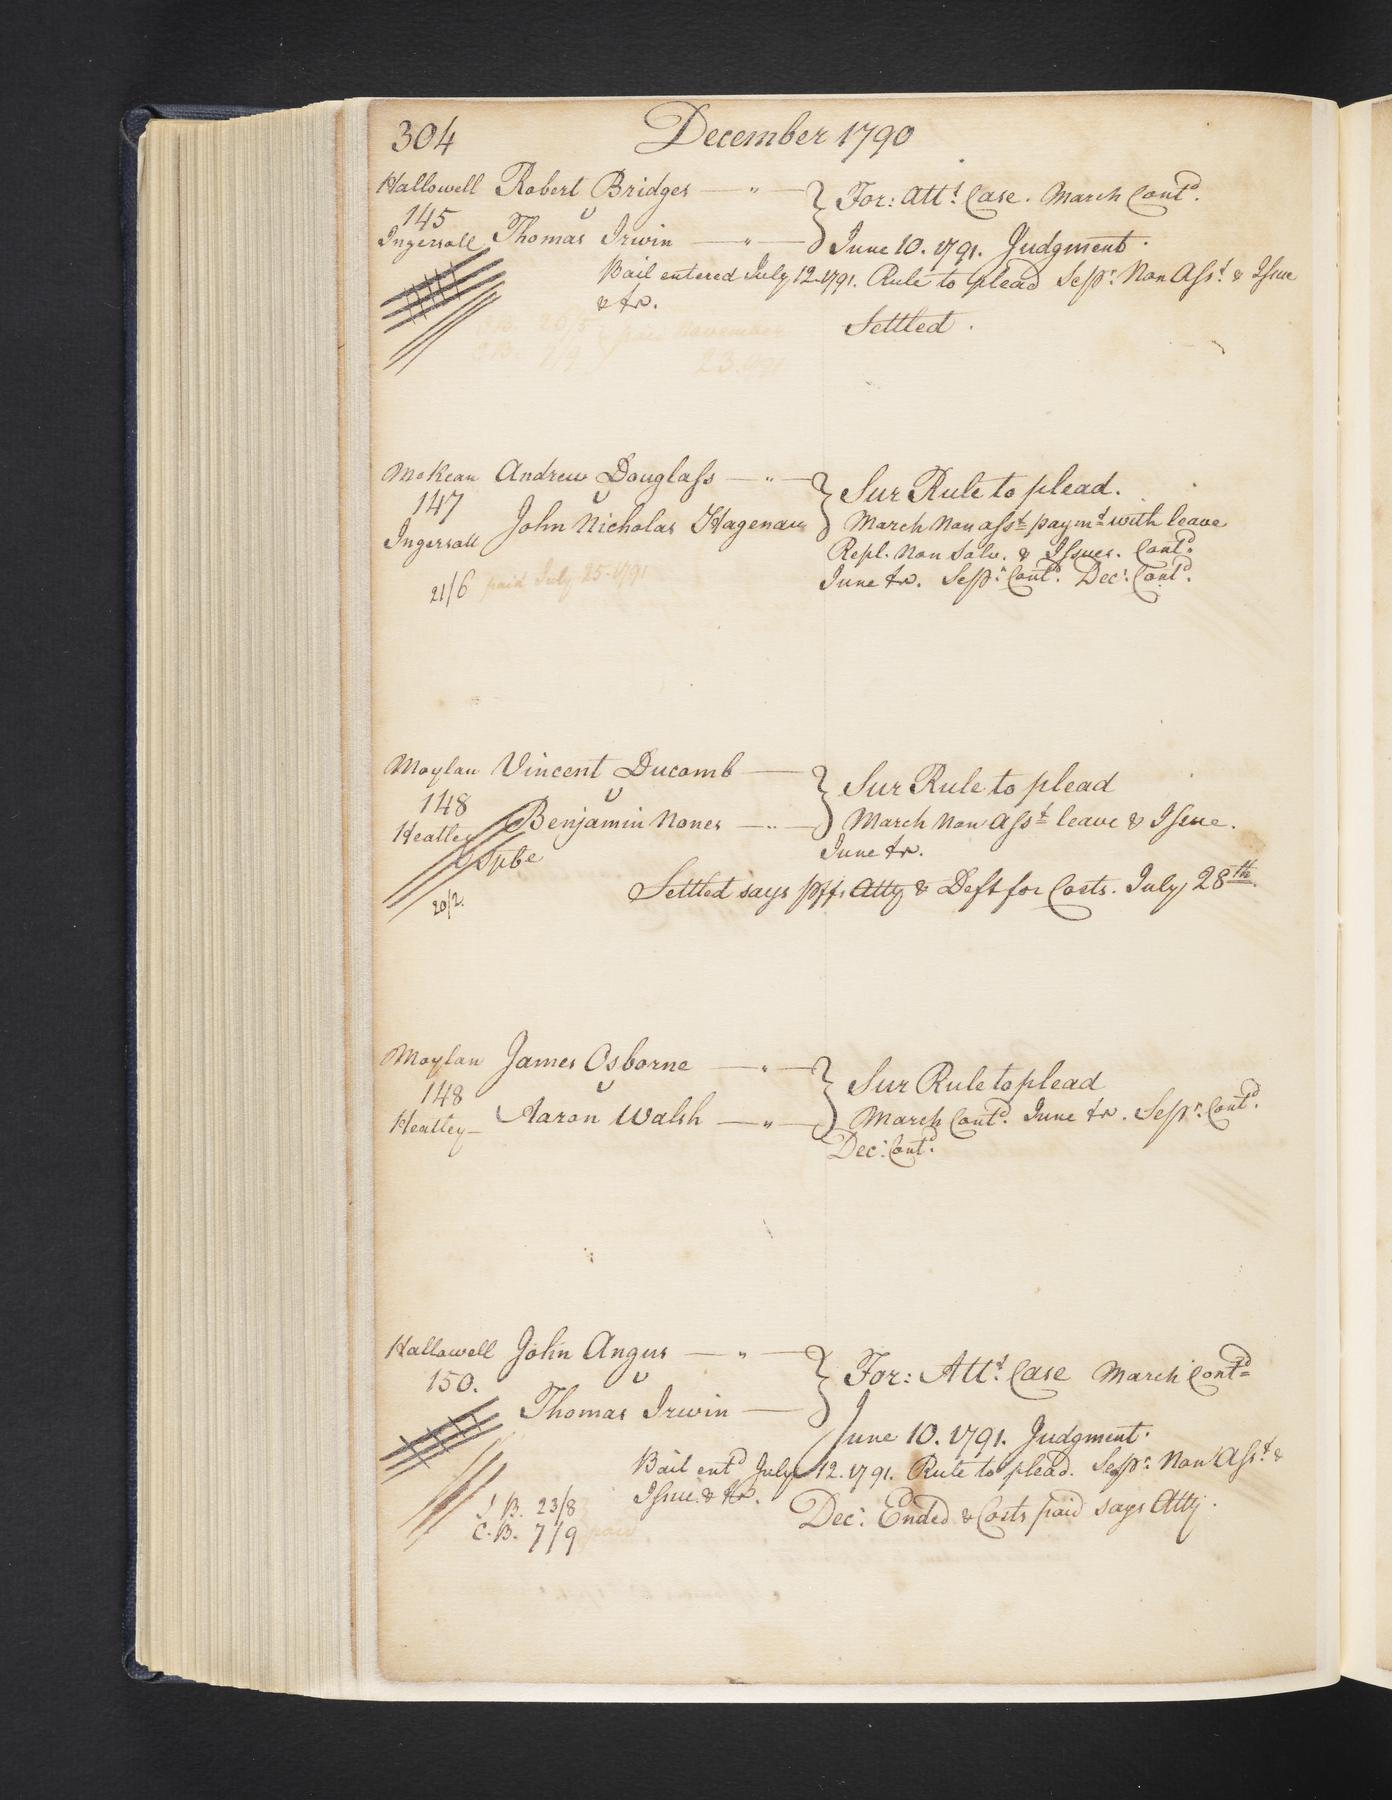 304 December 1790
Hallowell Robert Bridges — " — } For: Attt. Case. March Contd.
145 v
Ingersoll Thomas Irwin — " — June 10. 1791. Judgment.
Bail entered July 12. 1791. Rule to plead Sepr. Non Asst. & Issue
& fr.
Settled.
20/5 } paid November
7/9 23. 1791
McKean Andrew Douglass — " — } Sur Rule to plead.
147 v
Ingersoll John Nicholas Hagenau March Non asst. paymt. with leave
Repl. Non Solv. & Issues. Contd.
June fr. Sepr. Contd. Decr. Contd.
21/6 paid July 25. 1791
Moylan Vincent Ducomb — } Sur Rule to plead
148 v
Heatley Benjamin Nones — " — March Non Asst. leave & Issue.
Spbe June fr.
Settled says Plffs Atty & Deft for Costs. July 28th.
20/2.
Moylan James Osborne — " — } Sur Rule to plead
148 v
Heatley — Aaron Walsh — " — March Contd. June fr. Sepr. Contd.
Decr. Contd.
Hallowell John Angus — " — } For: Attt. Case March Contd.
150. v
Thomas Irwin —
June 10. 1791. Judgment.
Bail entd July 12. 1791. Rule to plead. Sepr. Non Asst. &
Issue. & fr.
Decr. Ended & Costs paid says Atty.
J. B. 23/8
C. B. 7/9 paid